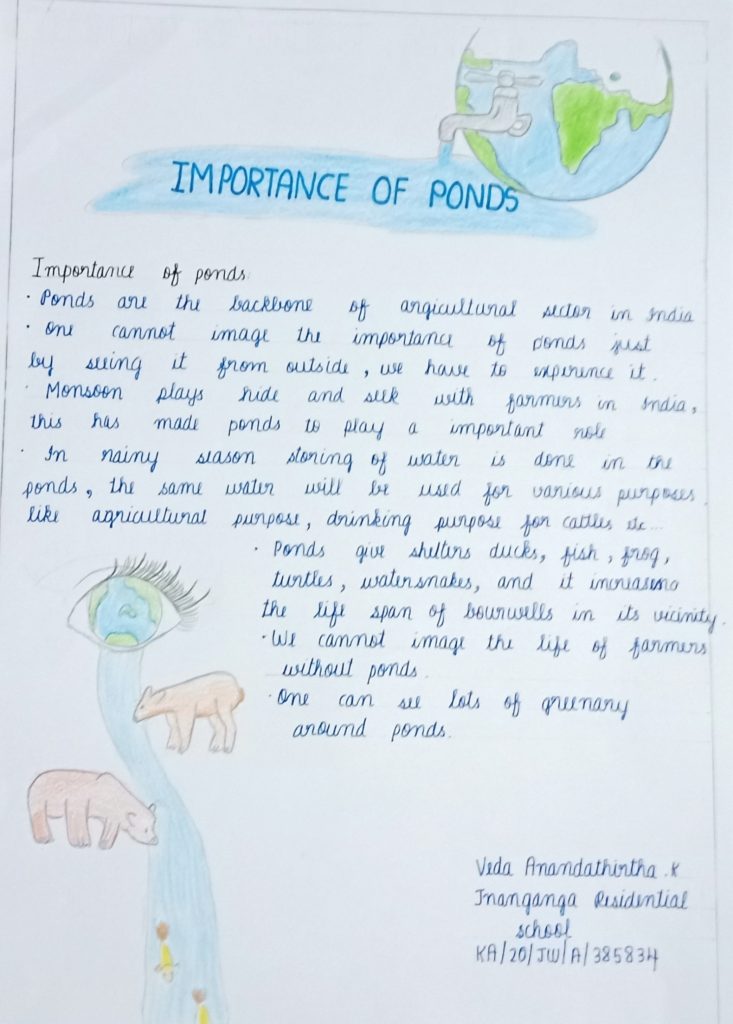 IMPORTANCE OF PONDS
Importance of ponds.
· Ponds are the backbone of argicultural sector in India
· One cannot image the importance of ponds just
by seeing it from outside, we have to experience it.
· Monsoon plays hide and seek with farmers in India,
this has made ponds to play a important role
· In rainy season storing of water is done in the
ponds, the same water will be used for various purposes.
like agricultural purpose, drinking purpose for cattles etc...
· Ponds give shelters ducks, fish, frog,
turtles, watersnakes, and it increasing
the life span of bourwells in its vicinity.
· We cannot image the life of farmers
without ponds.
· One can see lots of greenary
around ponds.
Veda Anandathirtha .K
Jnanganga Residential
school
KA/20/JW/A/385834